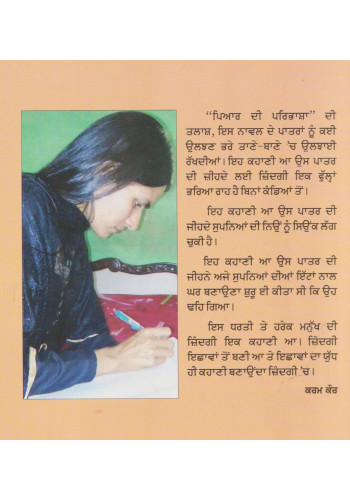 “ਪਿਆਰ ਦੀ ਪਰਿਭਾਸ਼ਾ” ਦੀ
ਤਲਾਸ਼, ਇਸ ਨਾਵਲ ਦੇ ਪਾਤਰਾਂ ਨੂੰ ਕਈ
ਉਲਝਣ ਭਰੇ ਤਾਣੇ-ਬਾਣੇ 'ਚ ਉਲਝਾਈ
ਰੱਖਦੀਆਂ। ਇਹ ਕਹਾਣੀ ਆ ਉਸ ਪਾਤਰ
ਦੀ ਜ਼ੀਹਦੇ ਲਈ ਜ਼ਿੰਦਗੀ ਇਕ ਫੁੱਲਾਂ
ਭਰਿਆ ਰਾਹ ਹੈ ਬਿਨਾਂ ਕੰਡਿਆਂ ਤੋਂ।
ਇਹ ਕਹਾਣੀ ਆ ਉਸ ਪਾਤਰ ਦੀ
ਜੀਹਦੇ ਸੁਪਨਿਆਂ ਦੀ ਨਿਉਂ ਨੂੰ ਸਿਉਂਕ ਲੱਗ
ਚੁਕੀ ਹੈ।
ਇਹ ਕਹਾਣੀ ਆ ਉਸ ਪਾਤਰ ਦੀ
ਜੀਹਨੇ ਅਜੇ ਸੁਪਨਿਆਂ ਦੀਆਂ ਇੱਟਾਂ ਨਾਲ
ਘਰ ਬਣਾਉਣਾ ਸ਼ੁਰੂ ਈ ਕੀਤਾ ਸੀ ਕਿ ਉਹ
ਢਹਿ ਗਿਆ।
ਇਸ ਧਰਤੀ ਤੇ ਹਰੇਕ ਮਨੁੱਖ ਦੀ
ਜ਼ਿੰਦਗੀ ਇਕ ਕਹਾਣੀ ਆ। ਜ਼ਿੰਦਗੀ
ਇਛਾਵਾਂ ਤੋਂ ਬਣੀ ਆ ਤੇ ਇਛਾਵਾਂ ਦਾ ਯੁੱਧ
ਹੀ ਕਹਾਣੀ ਬਣਾਉਂਦਾ ਜ਼ਿੰਦਗੀ 'ਚ।
ਕਰਮ ਕੌਰ